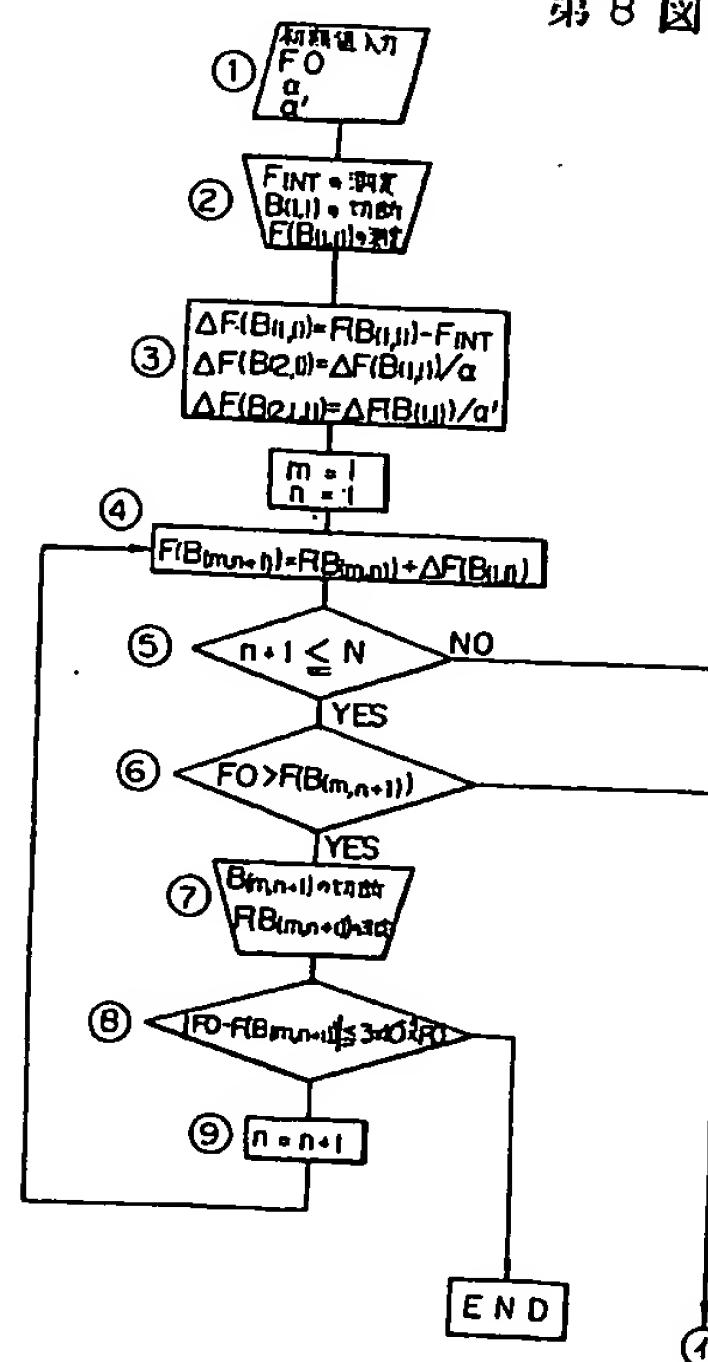 第8図
①
初期値入力
FO
a
a'
②
FINT の測定
B(1,1)の切断
F(B(1,1))の測定
③
ΔF(B(1,1))=F(B(1,1))-FINT
ΔF(B(2,1))=ΔF(B(1,1))/a
ΔF(B(2,1,1))=ΔF(B(1,1))/a'
m = 1
n = 1
④
F(B(m,n+1))=F(B(m,n))+ΔF(B(1,1))
⑤
n+1 ≦ N
NO
YES
⑥
FO>F(B(m,n+1))
YES
⑦
B(m,n+1)の切断
F(B(m,n+1))の測定
⑧
|FO-F(B(m,n+1))|≦
⑨
n = n+1
END